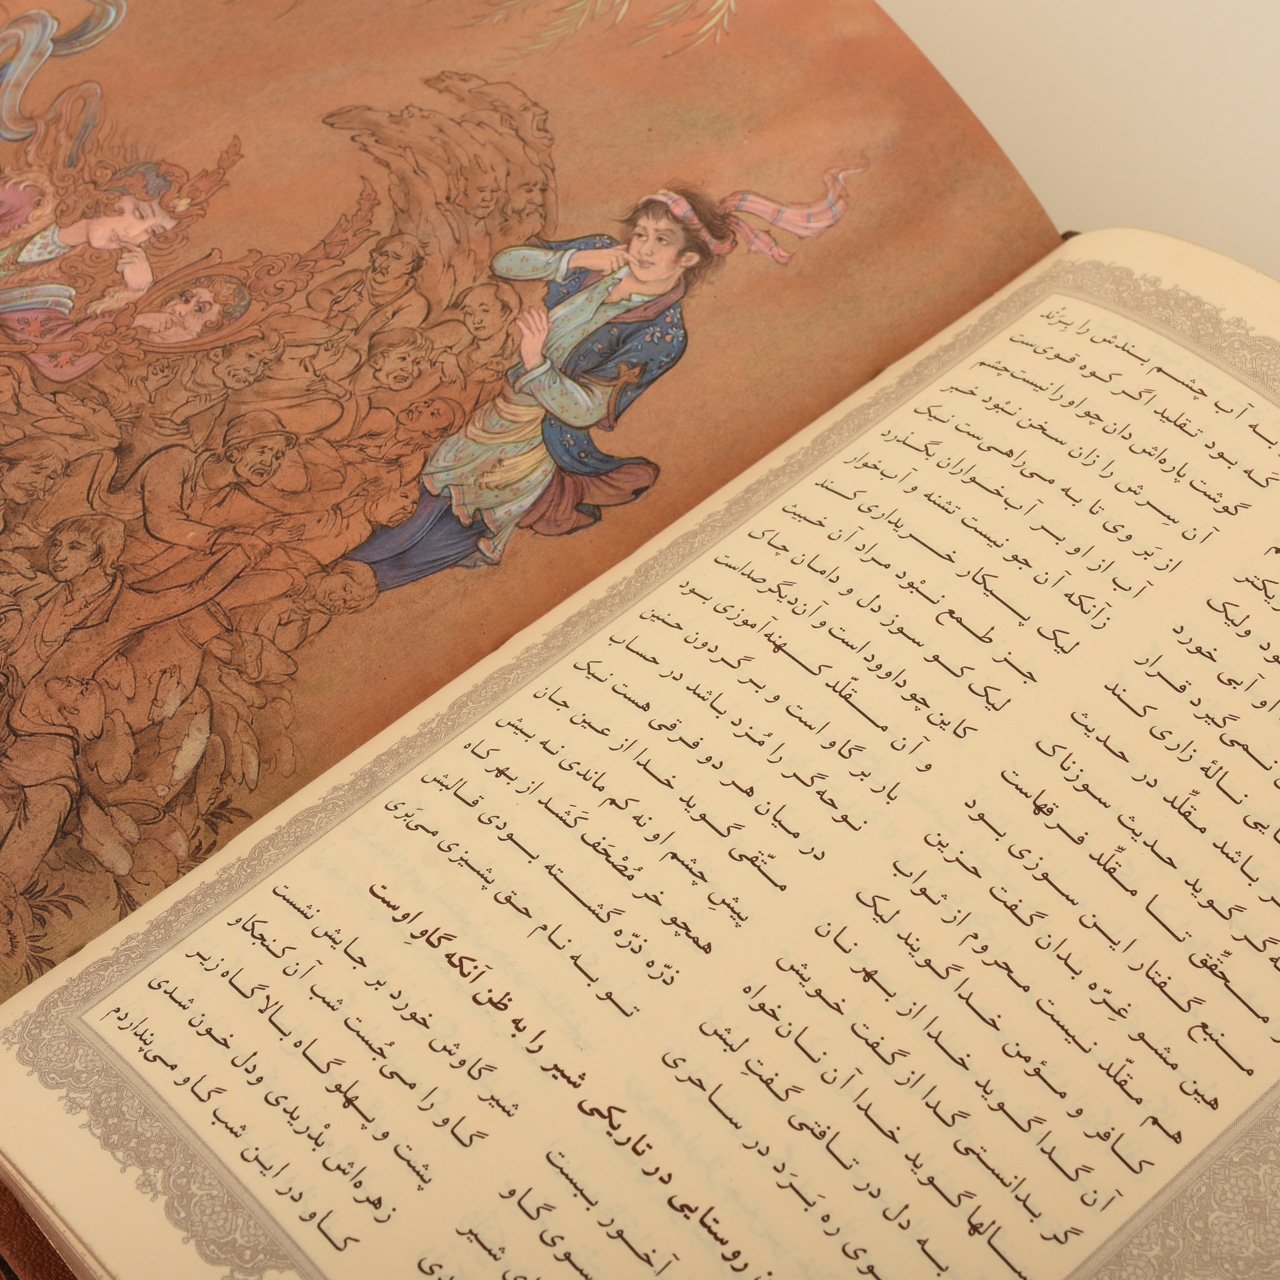 به آب چشم بندش را برند
که بود تقلید اگر کوه قوی‌ست
گوشت پاره‌اش دان چو او را نیست چشم
یکتر آن سرش را زان سخن نبْود خبر
ود ولیک از بَر وی تا به می راهی‌ست نیک
او آبی خورد آب از او بر آب‌خواران بگذرد
نمی‌گیرد قرار زآنکه آن جو نیست تشنه و آب‌خوار
نایی نالهٔ زاری کند لیک پیکار خریداری کند
باشد مقلّد در حدیث جز طمع نبْود مراد آن خبیث
گر گوید حدیث سوزناک لیک کو سوز دل و دامان چاک
محقّق تا مقلّد فرقهاست کاین چو داوود است و آن دیگر صداست
منبع گفتار این سوزی بود و آن مقلّد کهنه‌آموزی بود
هین مشو غرّه بدان گفت حزین بار بر گاو است و بر گردون حنین
هم مقلّد نیست محروم از ثواب نوحه‌گر را مُزد باشد در حساب
کافر و مؤمن خدا گویند لیک در میان هر دو فرقی هست نیک
آن گدا گوید خدا از بهر نان متّقی گوید خدا از عین جان
گر بدانستی گدا از گفت خویش پیشِ چشم او نه کم ماندی نه بیش
سالها گوید خدا آن نان‌خواه همچو خر مُصْحَف کَشَد از بهر کاه
به دل در تافتی گفتِ لبش ذرّه ذرّه گشته بودی قالبش
وی ره بَرَد در ساحری تو به نام حق پشیزی می‌بَری
روستایی در تاریکی شیر را به ظن آنکه گاوِ اوست
آخور ببست شیر گاوش خورد بر جایش نشست
سوی گاو گاو را می‌جُست شب آن کنجکاو
شیر پشت و پهلو گاه بالا گاه زیر
دی زهره‌اش بدْریدی ودل خون شدی
کاو در این شب گاو می‌پنداردم